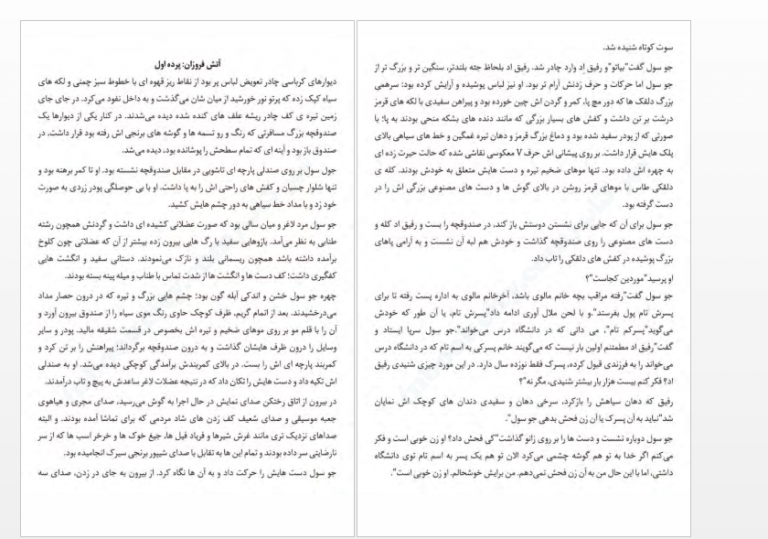 آتش فروزان: پرده اول
دیوارهای کرباسی چادر تعویض لباس پر بود از نقاط ریز قهوه ای با خطوط سبز چمنی و لکه های
سیاه کپک زده که پرتو نور خورشید از میان شان می‌گذشت و به داخل نفوذ می‌کرد. در جای جای
زمین تیره ی کف چادر ریشه علف های کنده شده دیده می‌شدند. در کنار یکی از دیوارها یک
صندوقچه بزرگ مسافرتی که رنگ و رو تسمه ها و گوشه های برنجی اش رفته بود قرار داشت. در
صندوق باز بود و آینه ای که تمام سطحش را پوشانده بود، دیده می‌شد.
جول سول بر روی صندلی پارچه ای تاشویی در مقابل صندوقچه نشسته بود. او تا کمر برهنه بود و
تنها شلوار چسبان و کفش های راحتی اش را به پا داشت. او با بی حوصلگی پودر زردی به صورت
خود زد و با مداد خط سیاهی به دور چشم هایش کشید.
جو سول مرد لاغر و میان سالی بود که صورت عضلانی کشیده ای داشت و گردنش همچون رشته
طنابی به نظر می‌آمد. بازوهایی سفید با رگ هایی بیرون زده بیشتر از آن که عضلاتی چون کلوخ
برآمده داشته باشد همچون ریسمانی بلند و نازک می‌نمودند. دستانی سفید و انگشت هایی
کفگیری داشت؛ کف دست ها و انگشت ها از شدت تماس با طناب و میله پینه بسته بودند.
چهره جو سول خشن و اندکی آبله گون بود؛ چشم هایی بزرگ و تیره که در درون حصار مداد
می‌درخشیدند. بعد از اتمام گریم، ظرف کوچک حاوی رنگ موی سیاه را از صندوق بیرون آورد و
آن را با قلم مو بر روی موهای ضخیم و تیره اش بخصوص در قسمت شقیقه مالید. پودر و سایر
وسایل را درون ظرف هایشان گذاشت و به درون صندوقچه برگرداند؛ پیراهنش را بر تن کرد و
کمربند پارچه ای اش را بست. در بالای کمربندش برآمدگی کوچکی دیده می‌شد. او به صندلی
اش تکیه داد و دست هایش را تکان داد که در نتیجه عضلات لاغر ساعدش به پیچ و تاب درآمدند.
در بیرون از اتاق رختکن صدای نمایش در حال اجرا به گوش می‌رسید، صدای مجری و هیاهوی
جعبه موسیقی و صدای ضعیف کف زدن های شاد مردمی که برای تماشا آمده بودند. و البته
صداهای نزدیک تری مانند غرش شیرها و فریاد فیل ها، جیغ خوک ها و خرخر اسب ها که از سر
نارضایتی سر داده بودند و تمام این ها به تقابل با صدای شیپور برنجی سیرک انجامیده بود.
جو سول دست هایش را حرکت داد و به آن ها نگاه کرد. از بیرون به جای در زدن، صدای سه
سوت کوتاه شنیده شد.
جو سول گفت"بیاتو"و رفیق اِد وارد چادر شد. رفیق اد بلحاظ جثه بلندتر، سنگین تر و بزرگ تر از
جو سول اما حرکات و حرف زدنش آرام تر بود. او نیز لباس پوشیده و آرایش کرده بود: سرهمی
بزرگ دلقک ها که دور مچ پا، کمر و گردن اش چین خورده بود و پیراهن سفیدی با لکه های قرمز
درشت بر تن داشت و کفش های بسیار بزرگی که مانند دنده های بشکه منحی بودند به پا؛ با
صورتی که از پودر سفید شده بود و دماغ بزرگ قرمز و دهان تیره غمگین و خط های سیاهی بالای
پلک هایش قرار داشت. بر روی پیشانی اش حرف V معکوسی نقاشی شده که حالت حیرت زده ای
به چهره اش داده بود. تنها موهای ضخیم تیره و دست هایش متعلق به خودش بودند. کله ی
دلقکی طاس با موهای قرمز روشن در بالای گوش ها و دست های مصنوعی بزرگی اش را در
دست گرفته بود.
جو سول برای آن که جایی برای نشستن دوستش باز کند، در صندوقچه را بست و رفیق اد کله و
دست های مصنوعی را روی صندوقچه گذاشت و خودش هم لبه آن نشست و به آرامی پاهای
بزرگ پوشیده در کفش های دلقکی را تاب داد.
او پرسید"موردین کجاست"؟
جو سول گفت"رفته مراقب بچه خانم مالوی باشد، آخرخانم مالوی به اداره پست رفته تا برای
پسرش تام پول بفرستد". و با لحن ملال آوری ادامه داد"پسرش تام، یا آن طور که خودش
می‌گوید"پسرکم تام"، می دانی که در دانشگاه درس می‌خواند".جو سول سرپا ایستاد و
گفت"رفیق اد مطمئنم اولین بار نیست که می‌گویند خانم پسرکی به اسم تام که در دانشگاه درس
می‌خواند را به فرزندی قبول کرده، پسرک فقط نوزده سال دارد. در این مورد چیزی شنیدی رفیق
اد؟ فکر کنم بیست هزار بار بیشتر شنیدی، مگر نه"؟
رفیق که دهان سیاهش را بازکرد، سرخی دهان و سفیدی دندان های کوچک اش نمایان
شد"نباید به آن پسرک یا آن زن فحش بدهی جو سول".
جو سول دوباره نشست و دست ها را بر روی زانو گذاشت"کی فحش داد؟ او زن خوبی است و فکر
می‌کنم اگر خدا به تو هم گوشه چشمی می‌کرد الان تو هم یک پسر به اسم تام توی دانشگاه
داشتی، اما با این حال من به آن زن فحش نمی‌دهم. من برایش خوشحالم. او زن خوبی است".